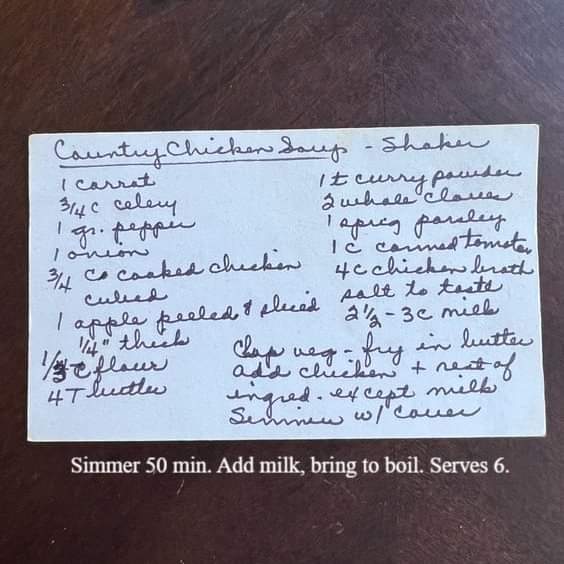 Country Chicken Soup - Shaker
1 carrot
3/4 c celery
1 gr. pepper
1 onion
3/4 c cooked chicken
cubed
1 apple peeled & sliced
1/4" thick
1/3 c flour
4 T butter
1 t curry powder
2 whole cloves
1 sprig parsley
1 c canned tomatoes
4 c chicken broth
salt to taste
2 1/2 - 3 c milk
Chop veg - fry in butter
add chicken + rest of
ingred. except milk
Simmer w/ cover
Simmer 50 min. Add milk, bring to boil. Serves 6.